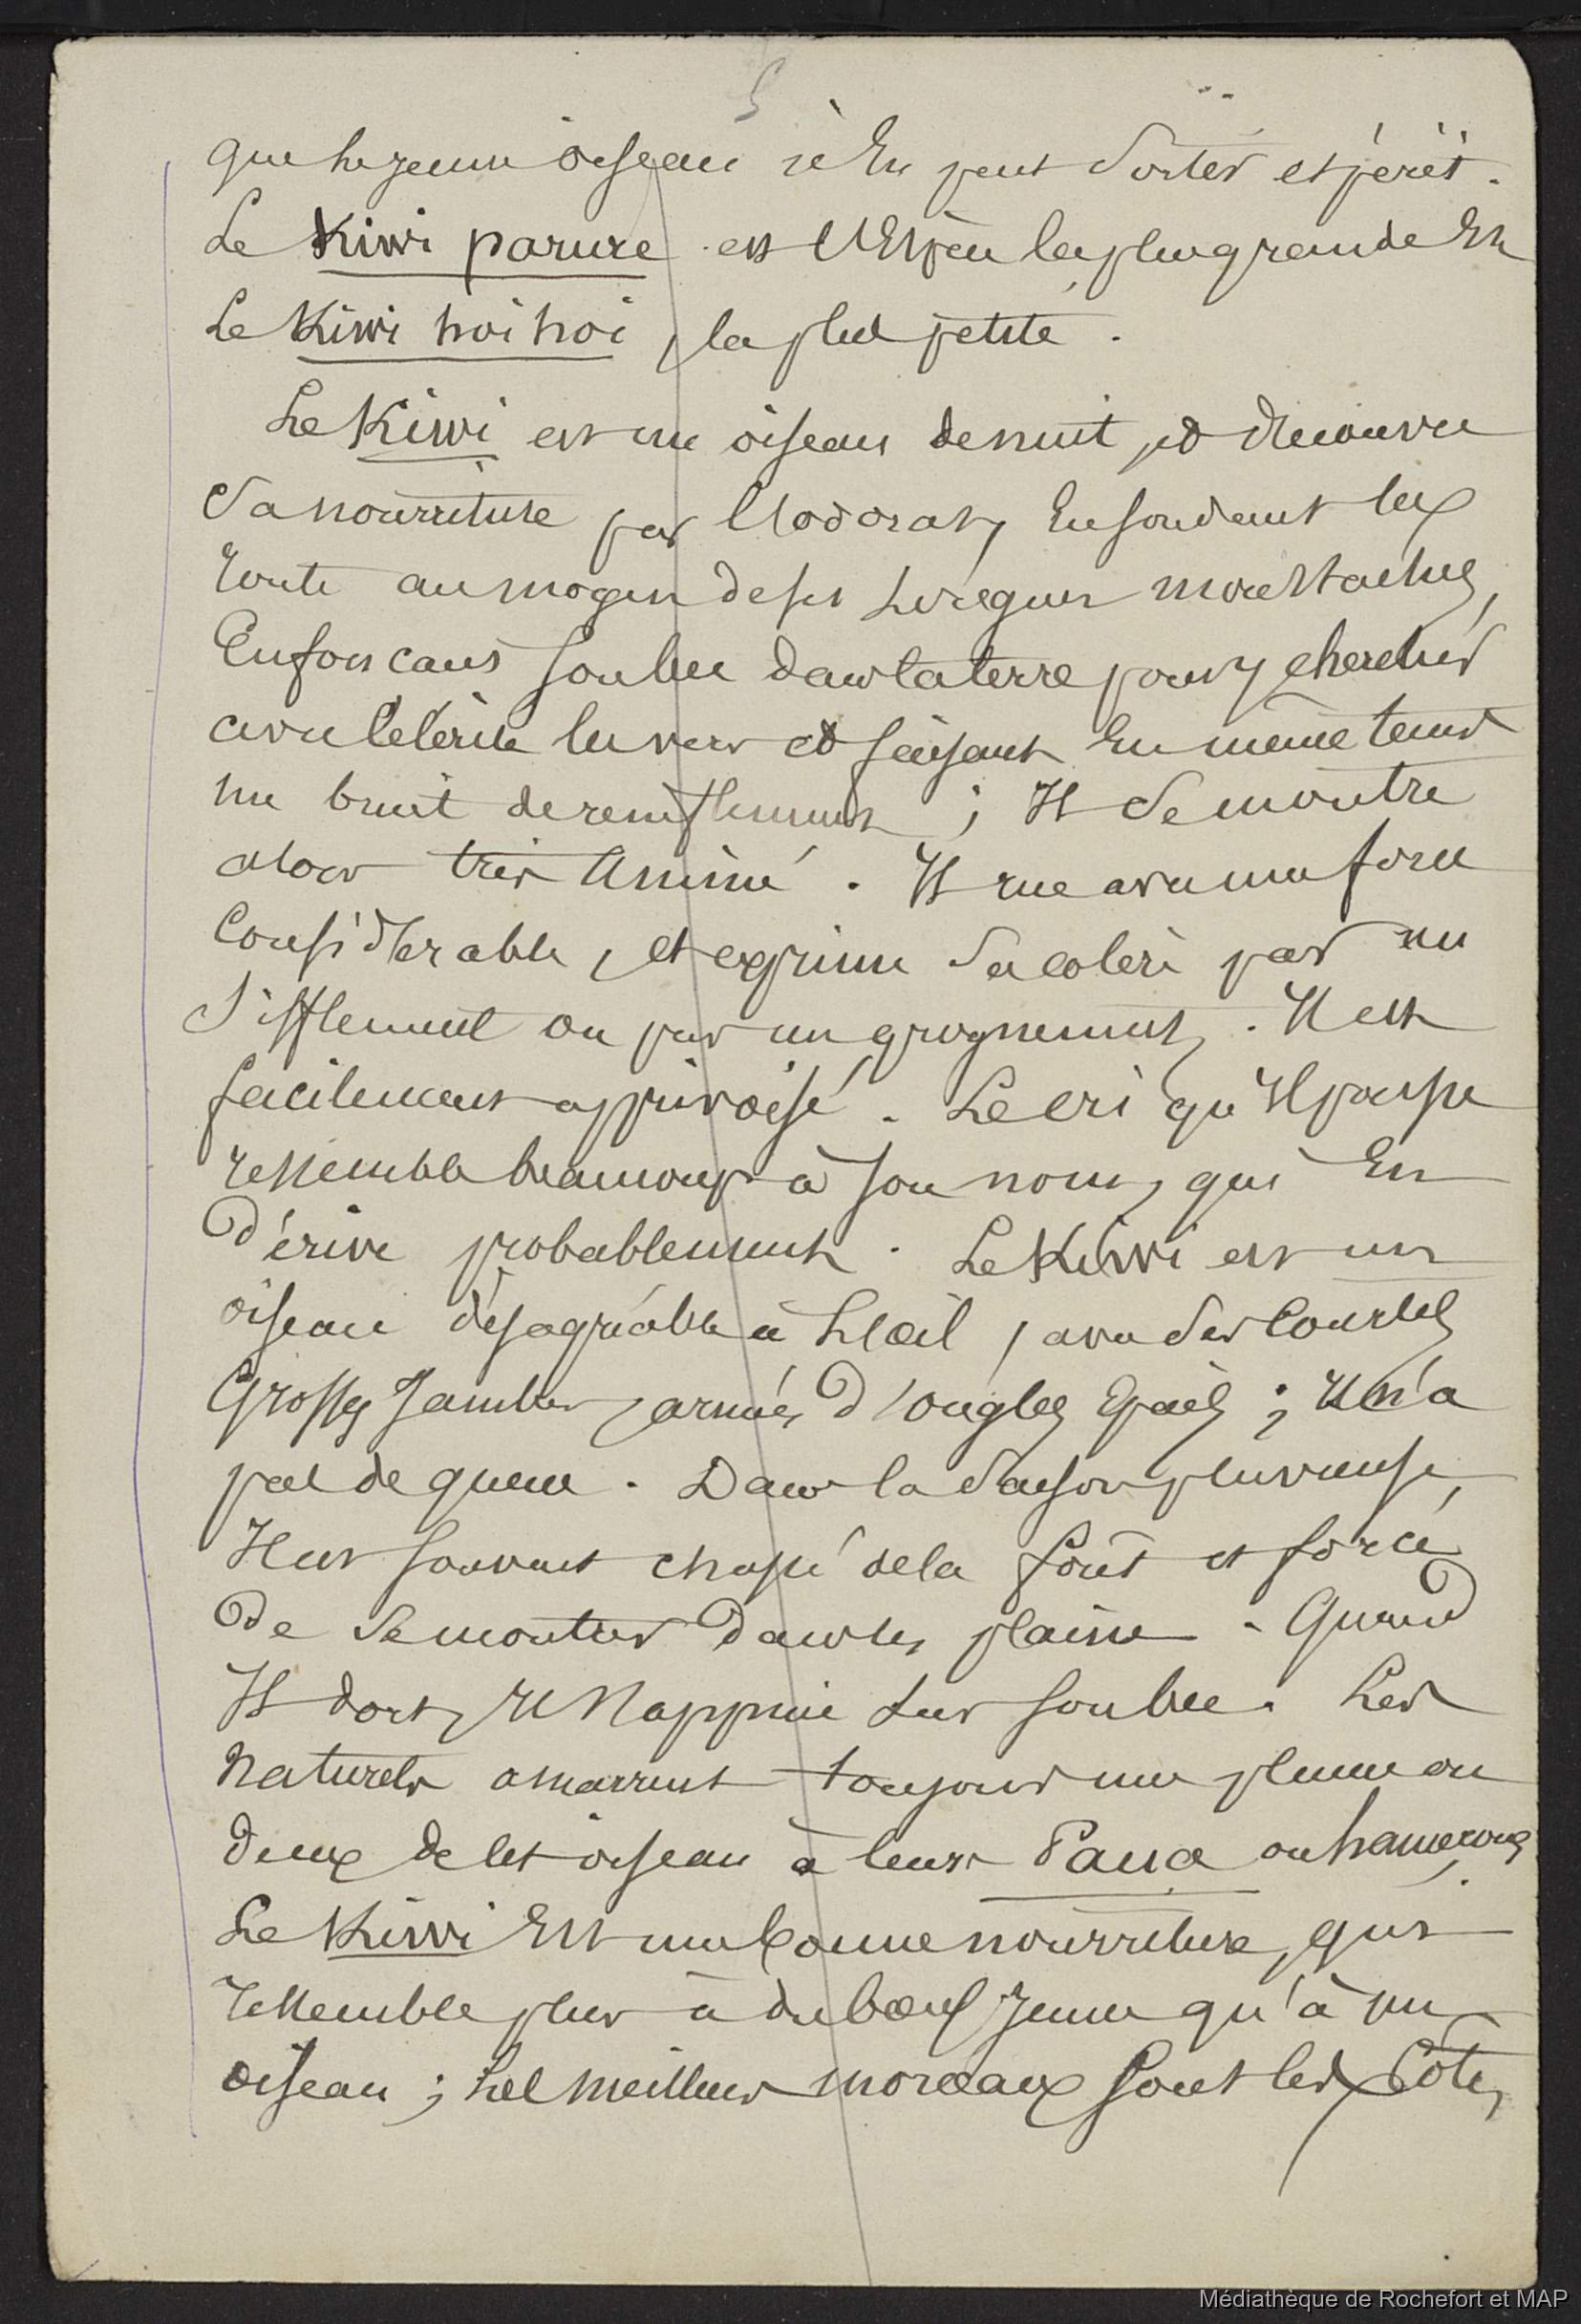 5
que le jeune oiseau n'en peut sortir et périt.
Le Kiwi parure est l'Espèce la plus grande Et
Le Kiwi hoihoi, la plus petite.
Le Kiwi est un oiseau de nuit, et découvre
Sa nourriture par l'odorat, En sondant les
route au moyen de ses longues moustaches,
Enfonçant son bec dans la terre pour y chercher
avec célérité les vers et faisant En même temps
un bruit de reniflement ; Il Se montre
alors très Animé. Il rue avec une force
Considérable, et exprime Sa colère par un
Sifflement ou par un grognement. Il est
facilement apprivoisé. Le cri qu'Il pousse
ressemble beaucoup à son nom, qui En
Dérive probablement. Le Kiwi est un
oiseau désagréable à L'œil, avec Ses Courtes
Grosses Jambes, armées D'ongles Epais ; Il n'a
pas de queue. Dans la Saison pluvieuse,
Il est souvent chassé de la forêt et forcé
De Se montrer Dans les plaines. Quand
Il dort, Il s'appuie sur son bec. Les
Naturels amarrent toujours une plume ou
Deux de cet oiseau à leurs Paua ou hameçons.
Le Kiwi Est une bonne nourriture, qui
ressemble plus à du bœuf Jeune qu'à un
oiseau ; Les meilleurs morceaux Sont les Côtes,
Médiathèque de Rochefort et MAP